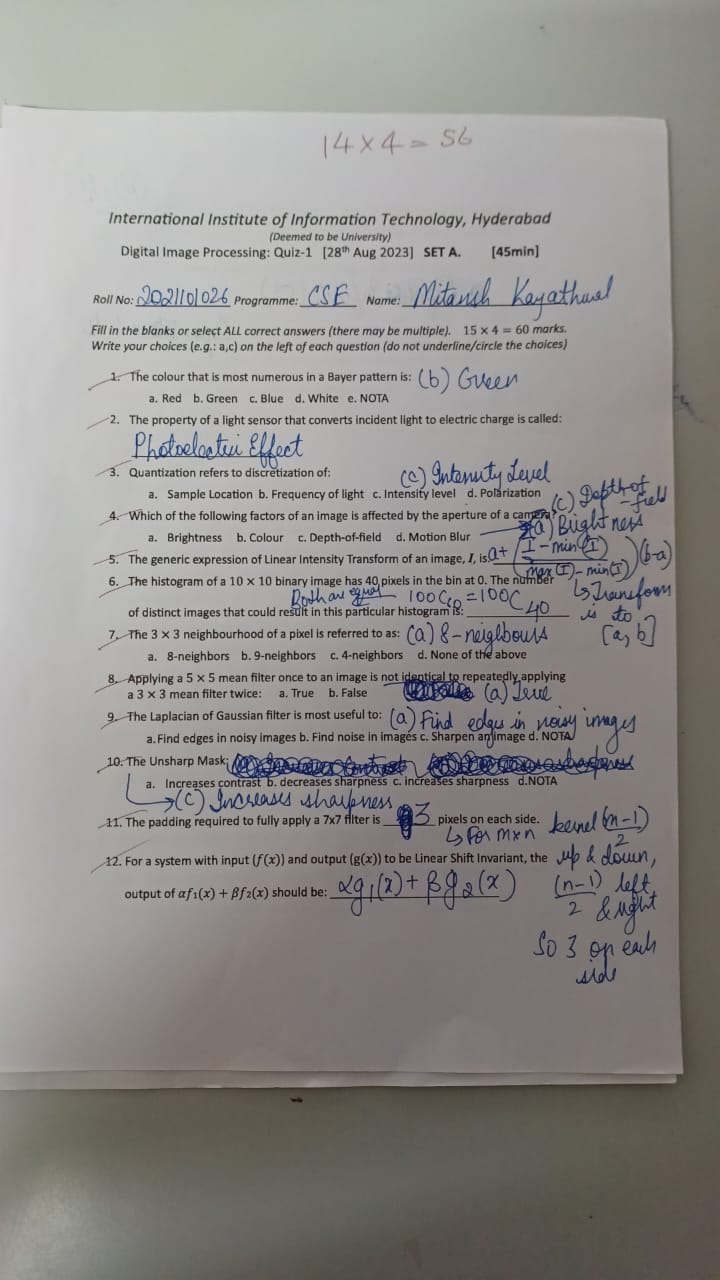 14 x 4 = 56
International Institute of Information Technology, Hyderabad
(Deemed to be University)
Digital Image Processing: Quiz-1 [28th Aug 2023] SET A. [45min]
Roll No: 2021101026 Programme: CSE Name: Mitansh Kayathwal
Fill in the blanks or select ALL correct answers (there may be multiple). 15 x 4 = 60 marks.
Write your choices (e.g.: a,c) on the left of each question (do not underline/circle the choices)
1. The colour that is most numerous in a Bayer pattern is: (b) Green
a. Red b. Green c. Blue d. White e. NOTA
2. The property of a light sensor that converts incident light to electric charge is called:
Photoelectric Effect
3. Quantization refers to discretization of: (c) Intensity Level
a. Sample Location b. Frequency of light c. Intensity level d. Polarization
(c) Depth of-field
4. Which of the following factors of an image is affected by the aperture of a camera? (a) Brightness
a. Brightness b. Colour c. Depth-of-field d. Motion Blur
5. The generic expression of Linear Intensity Transform of an image, I, is: a + (I - min(I) / max(I) - min(I)) (b-a)
↳ Transform is to [a, b]
6. The histogram of a 10 x 10 binary image has 40 pixels in the bin at 0. The number
Both are equal 100C60 = 100C40
of distinct images that could result in this particular histogram is:
7. The 3 x 3 neighbourhood of a pixel is referred to as: (a) 8-neighbours
a. 8-neighbors b. 9-neighbors c. 4-neighbors d. None of the above
8. Applying a 5 x 5 mean filter once to an image is not identical to repeatedly applying
a 3 x 3 mean filter twice: a. True b. False (a) True
9. The Laplacian of Gaussian filter is most useful to: (a) Find edges in noisy images
a. Find edges in noisy images b. Find noise in images c. Sharpen an image d. NOTA
10. The Unsharp Mask:
a. Increases contrast b. decreases sharpness c. increases sharpness d.NOTA
→ (c) Increases sharpness
11. The padding required to fully apply a 7x7 filter is 3 pixels on each side.
↳ For mxn kernel (m-1)/2
up & down,
12. For a system with input (f(x)) and output (g(x)) to be Linear Shift Invariant, the
output of αf₁(x) + βf₂(x) should be: αg₁(x) + βg₂(x)
(n-1)/2 left & right
So 3 on each
side